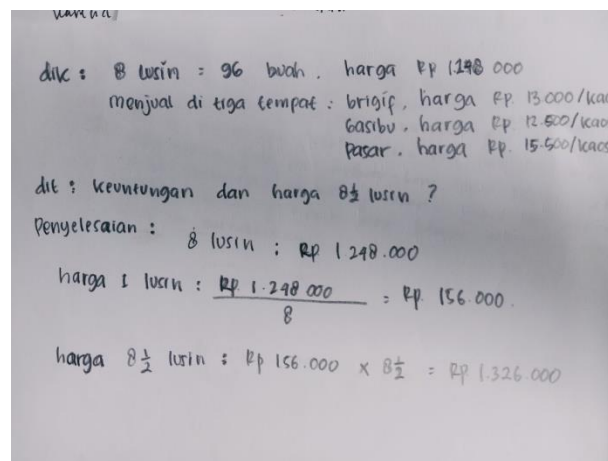 dik : 8 lusin = 96 buah. harga Rp 1.248 000
menjual di tiga tempat : brigif, harga Rp. 13.000/kaos
Gasibu, harga Rp 12.500/kaos
Pasar. harga Rp. 15.500/kaos
dit : keuntungan dan harga 8½ lusin ?
Penyelesaian :
8 lusin : Rp 1.248.000
harga 1 lusin : Rp. 1.248 000 / 8 = Rp. 156.000.
harga 8½ lusin : Rp 156.000 × 8½ = Rp 1.326.000